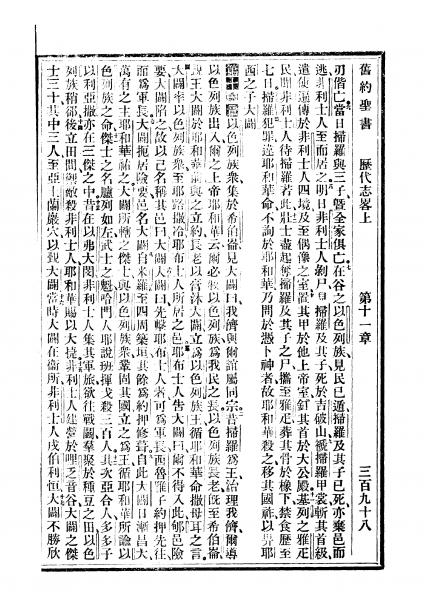 舊約聖書 歷代志畧上 第十一章 三百九十八
刃偕亡當日掃羅與三子曁全家俱亡在谷之以色列族見民已遁掃羅及其子已死亦棄邑而
逃非利士人至而居之明日非利士人剝尸見掃羅及其子死於吉破山褫掃羅甲裳斬其首級
遣使遍傳於非利士人四境及至偶像之室置其甲於他上帝室釘其首於大公殿基列之雅疋
民聞非利士人待掃羅若此壯士盡起奪掃羅及其子之尸攜至雅疋葬其骨於橡下禁食歷至
七日掃羅犯罪違耶和華命不詢於耶和華乃問於憑卜神者故耶和華殺之移其國祚以畀耶
西之子大闢
第十一章以色列族衆集於希伯崙見大闢曰我儕與爾誼屬同宗昔掃羅爲王治理我儕爾導
以色列族出入爾之上帝耶和華云爾必牧以色列族爲我民之長以色列族長老旣至希伯崙
覲王大闢於耶和華前與之立約長老以膏沐大闢立爲以色列族王循耶和華命撒母耳之言
大闢率以色列族衆至耶路撒冷耶布士人所居之邑耶布士人告大闢曰爾不得入此郇邑險
要大闢陷之故以己名稱其邑曰大闢大闢曰先擊耶布士人者可爲軍長西魯雅子約押先往
而爲軍長大闢扼居險要邑名大闢自米羅至四周築垣其餘爲約押修葺自此大闢日漸昌大
萬有之主耶和華祐之大闢所轄之傑士與以色列族衆鞏固其國立之爲王循耶和華所諭以
色列族之命傑士之名臚列如左武士之魁哈門人耶說班揮戈殺三百人其次亞合人多多子
以利亞撒亦在三傑之中昔在以弗大閔非利士人集其軍旅欲往戰鬬羣聚於種豆之田以色
列族稍卻後立田間禦敵殺非利士人耶和華賜以大捷非利士人建營於哩乏音谷大闢之傑
士三十其中三人至亞土蘭巖穴以覲大闢當時大闢在衞所非利士人戍伯利恒大闢不勝欣